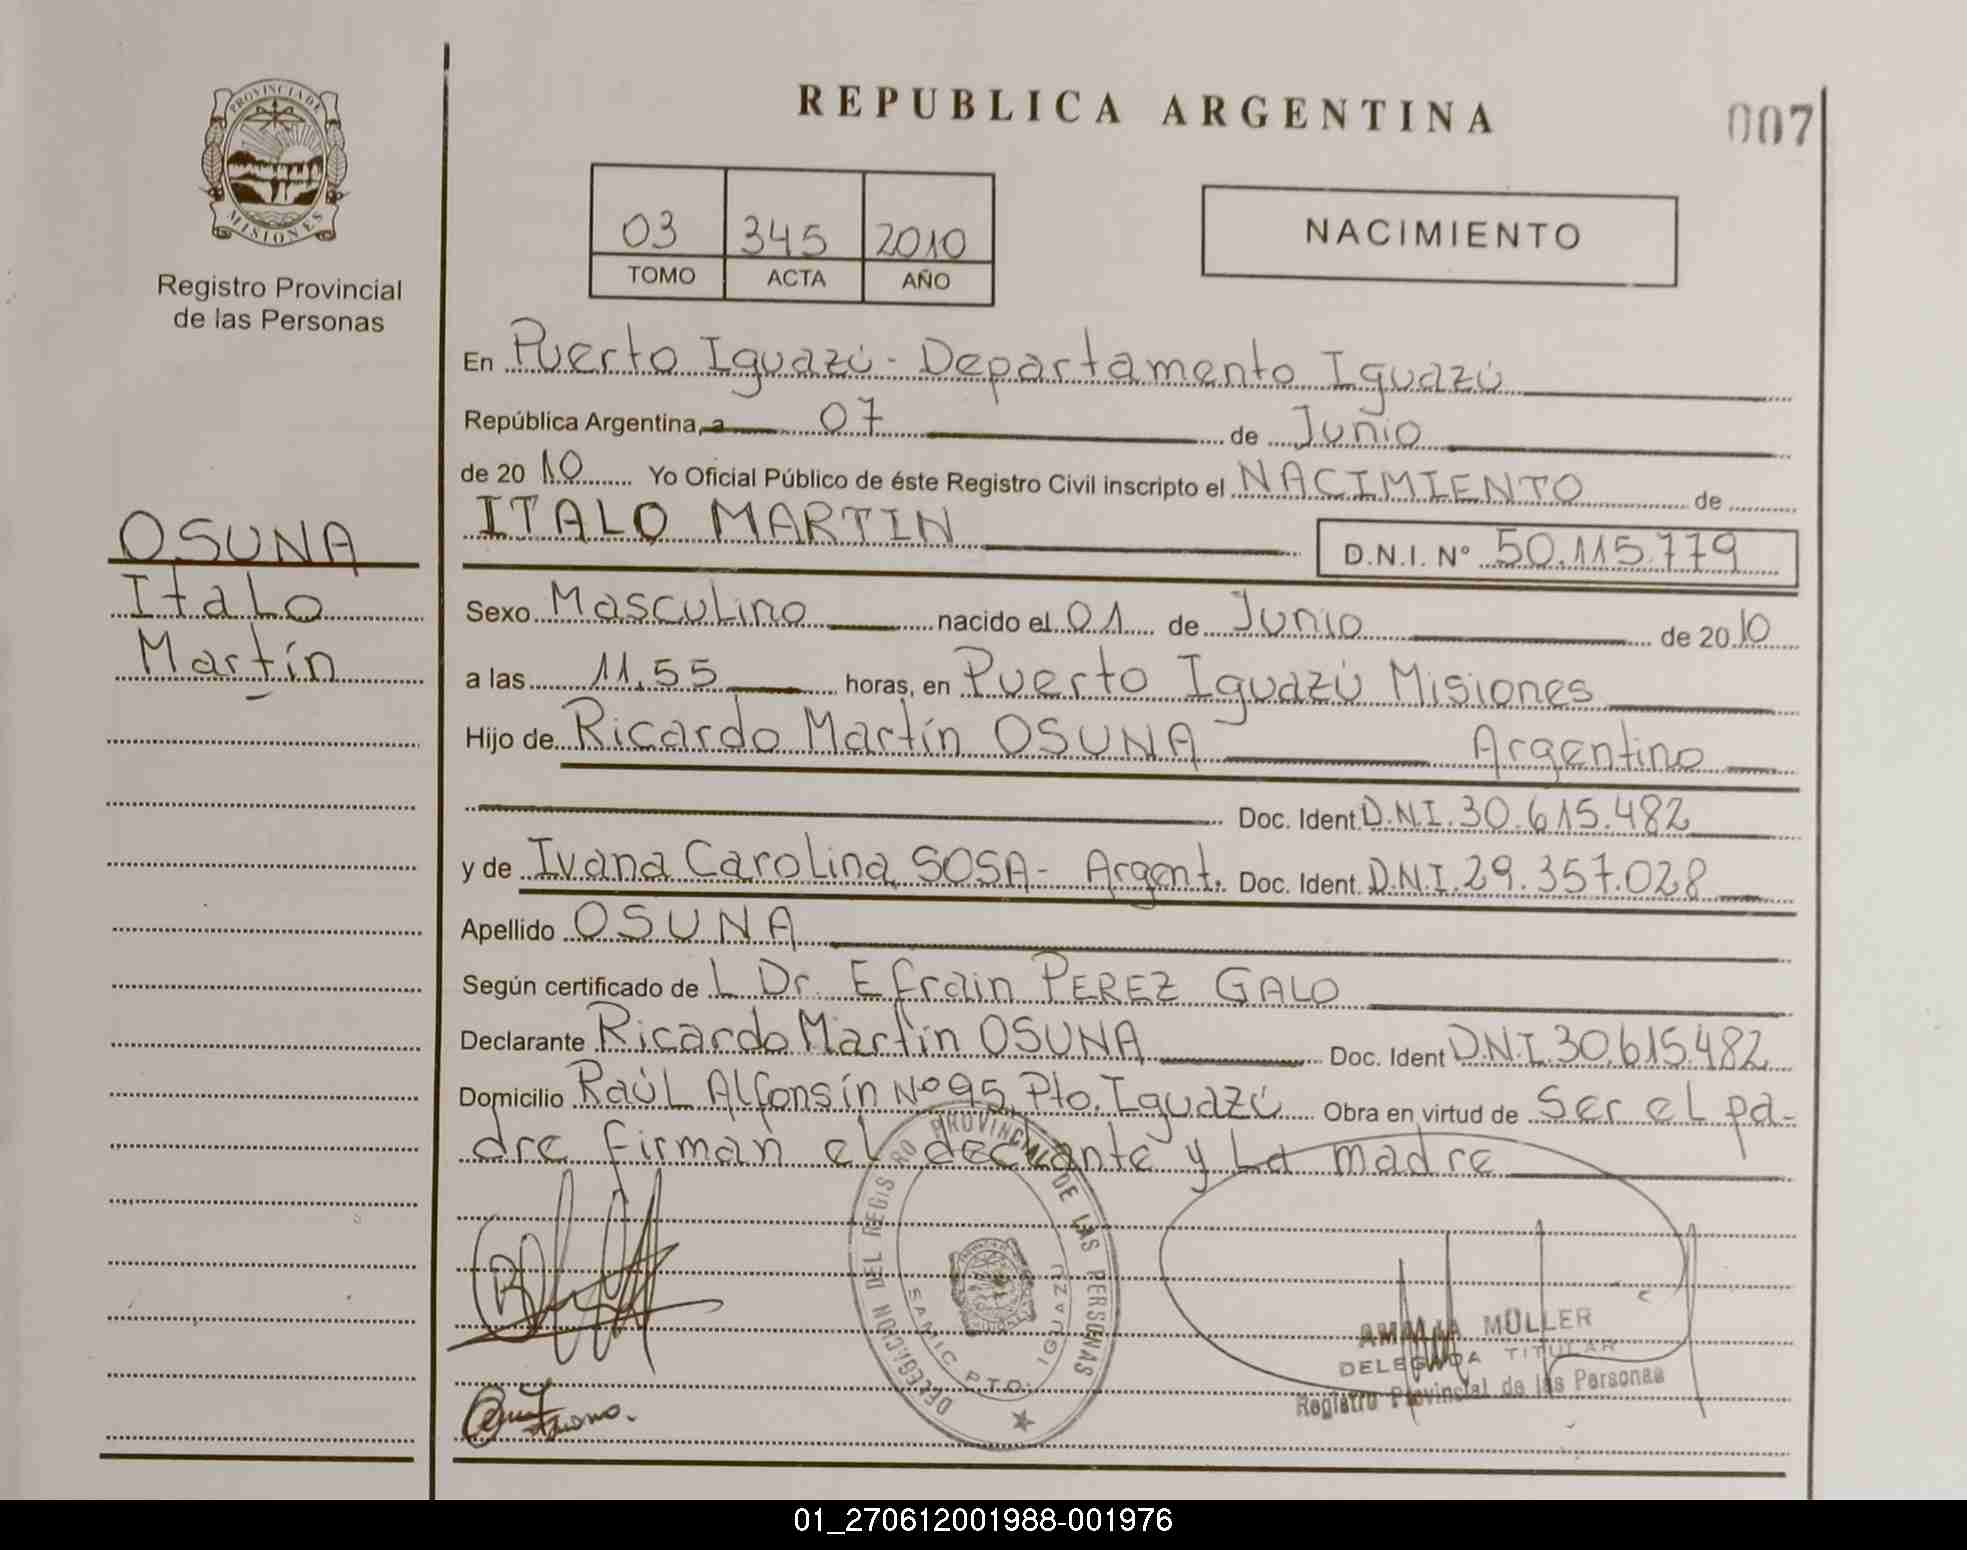 PROVINCIA DE
MISIONES
Registro Provincial
de las Personas
OSUNA
Italo
Martín
REPUBLICA ARGENTINA
007
03 345 2010
TOMO ACTA AÑO
NACIMIENTO
En Puerto Iguazú - Departamento Iguazú
República Argentina, a 07 de Junio
de 2010 Yo Oficial Público de éste Registro Civil inscripto el NACIMIENTO de
ITALO MARTIN D.N.I. Nº 50.115.779
Sexo Masculino nacido el 01 de Junio de 2010
a las 11.55 horas, en Puerto Iguazú Misiones
Hijo de Ricardo Martín OSUNA Argentino
Doc. Ident. D.N.I. 30.615.482
y de Ivana Carolina SOSA - Argent. Doc. Ident. D.N.I. 29.357.028
Apellido OSUNA
Según certificado de L Dr. Efrain PEREZ GALO
Declarante Ricardo Martin OSUNA Doc. Ident D.N.I. 30.615.482
Domicilio Raúl Alfonsín Nº 95 Pto. Iguazú Obra en virtud de Ser el pa-
dre firman el y La madre
DELEGACION DEL REGISTRO PROVINCIAL DE LAS PERSONAS
PTO. IGUAZU
AMALIA MULLER
DELEGADA TITULAR
Registro Provincial de las Personas
01_270612001988-001976